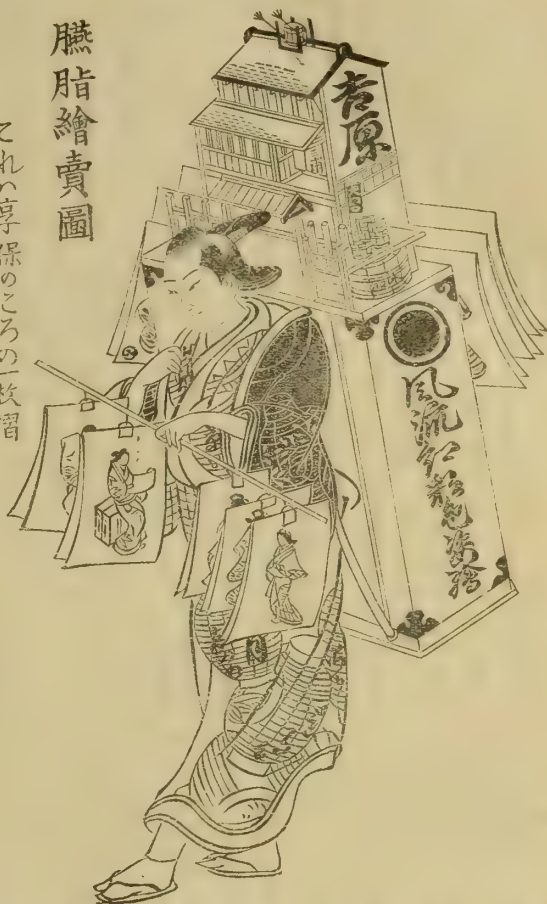 臙脂繪賣圖
これハ享保のころの一枚摺
吉原
風流紅彩色姿繪